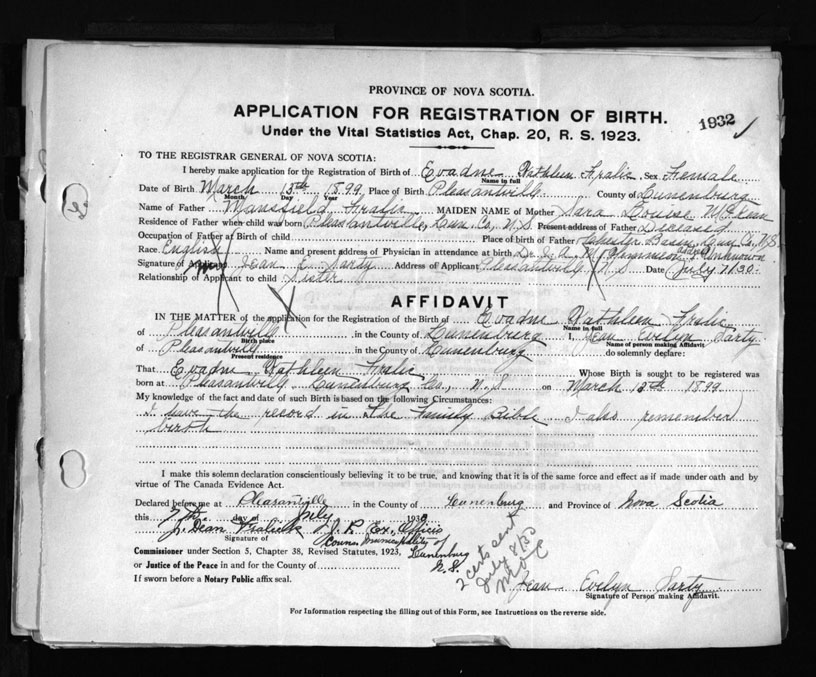 PROVINCE OF NOVA SCOTIA.
APPLICATION FOR REGISTRATION OF BIRTH.
1932
Under the Vital Statistics Act, Chap. 20, R. S. 1923.
TO THE REGISTRAR GENERAL OF NOVA SCOTIA:
I hereby make application for the Registration of Birth of Evadne Kathleen Fralic Sex Female
Name in full
Date of Birth March 13th 1899 Place of Birth Pleasantville County of Lunenburg
Month Day Year
Name of Father Mansfield Fralic MAIDEN NAME of Mother Sara Louise
Residence of Father when child was born Pleasantville, Lun. Co., N.S. Present address of Father Deceased
Occupation of Father at Birth of child Place of Birth of Father Chester Basin, Lun. Co. N.S.
Race English Name and present address of Physician in attendance at birth Dr. Unknown
Signature of Applicant Mrs Jean E. Sarty Address of Applicant Pleasantville N S Date July 7/30.
Relationship of Applicant to child Sister
AFFIDAVIT
IN THE MATTER of the application for the Registration of the Birth of Evadne Kathleen Fralic
Name in full
of Pleasantville in the County of Lunenburg I, Jean Evelyn Sarty
Birth place Name of person making Affidavit
of Pleasantville in the County of Lunenburg do solemnly declare:
Present residence
That Evadne Kathleen Fralic Whose Birth is sought to be registered was
born at Pleasantville Lunenburg Co., N.S. on March 13th 1899
My knowledge of the fact and date of such Birth is based on the following Circumstances:
I have the record in the Family Bible I also remember
birth
I make this solemn declaration conscientiously believing it to be true, and knowing that it is of the same force and effect as if made under oath and by
virtue of The Canada Evidence Act.
Declared before me at Pleasantville in the County of Lunenburg and Province of Nova Scotia
this 7th day of July 1930
J. Dean Fralick J. P. Ex. Officio
Signature of Coun. Municipality of
Commissioner under Section 5, Chapter 38, Revised Statutes, 1923, Lunenburg
or Justice of the Peace in and for the County of N.S.
2 certs sent
July 8/30
If sworn before a Notary Public affix seal.
Jean Evelyn Sarty
Signature of Person making Affidavit.
For Information respecting the filling out of this Form, see Instructions on the reverse side.